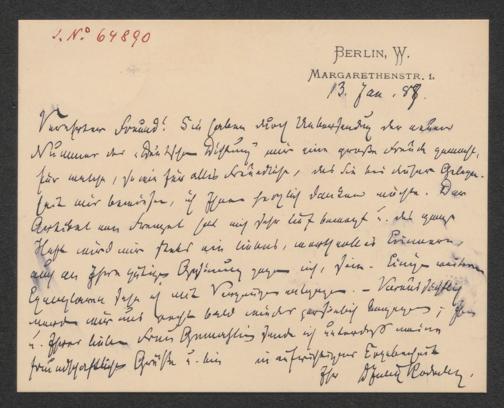 J. No 64890
Berlin, W.
Margarethenstr. 1.
13. Jan. 88.
Verehrter Freund! Sie haben durch Uebersendung der neuen
Nummer der „Deutschen Dichtung" mir eine große Freude gemacht,
für welche, sowie für alles Freundliche, das Sie bei dieser Gelegen-
heit mir bewiesen, ich Ihnen herzlich danken möchte. Der
Artikel von hat mich sehr tief bewegt u. das ganze
Heft wird mir stets ein liebes, werthvolles Erinnern,
auch an Ihre gütige Gesinnung gegen mich, sein. Einigen weiteren
Exemplaren sehe ich mit Vergnügen entgegen. – Voraussichtlich
werden wir uns recht bald wieder persönlich begegnen; Ihnen
u. Ihrer lieben Frau Gemahlin sende ich unterdeß meine
freundschaftlichen Grüße u. bin in aufrichtiger Ergebenheit
Ihr Julius Rodenberg.